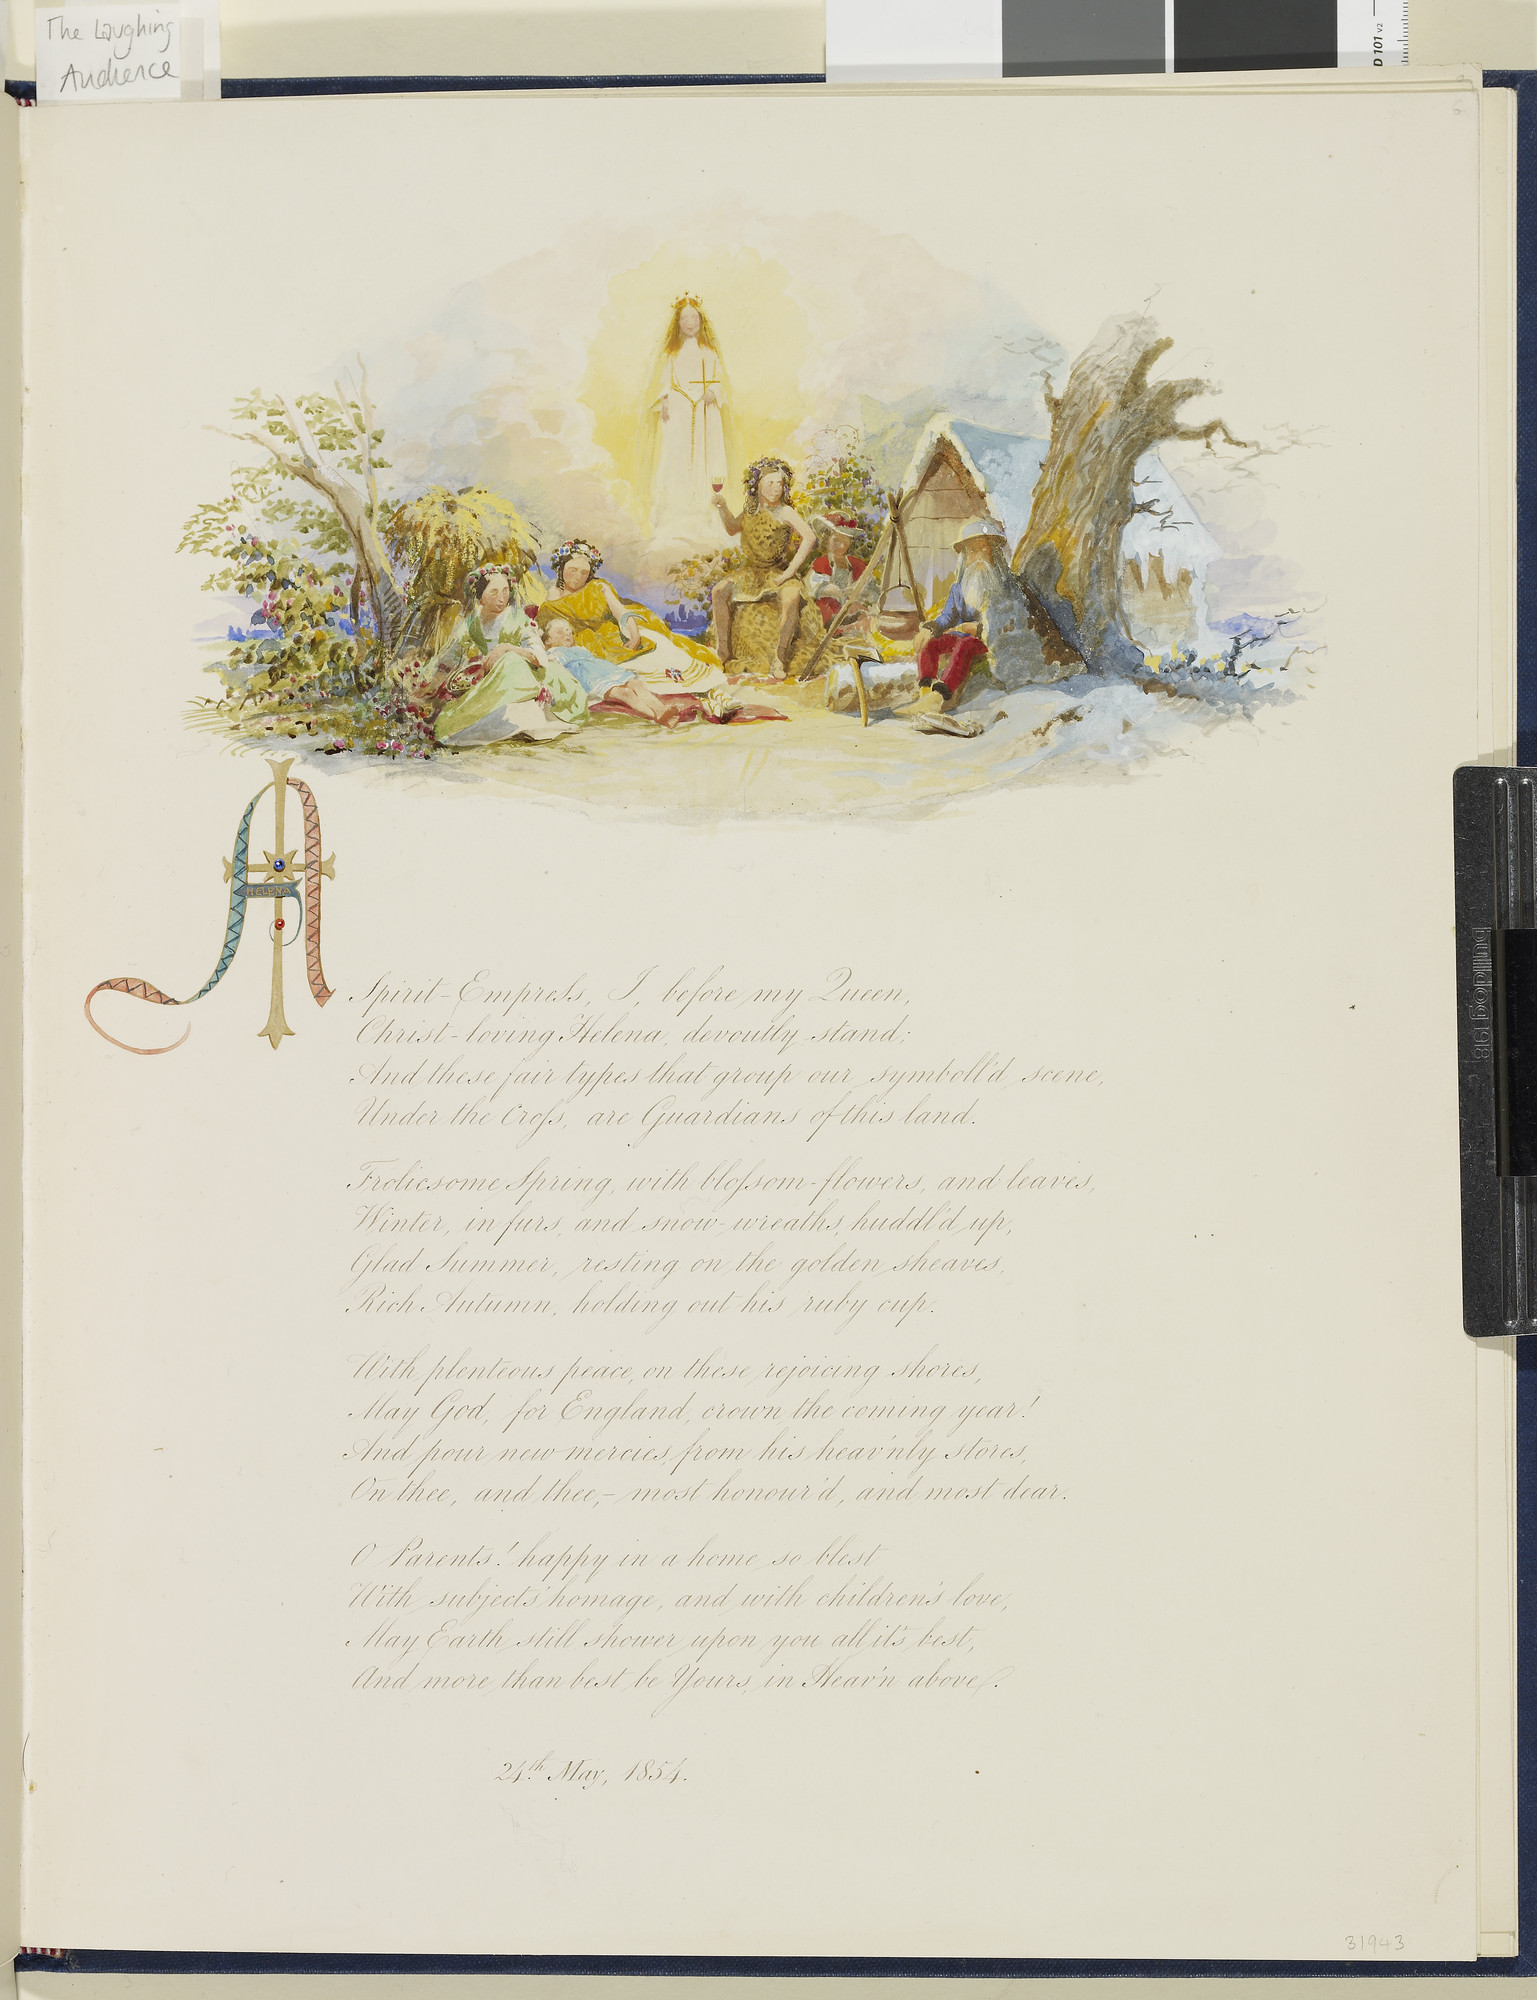 The Laughing
Audience
D 101 v2
6
A
HELENA
Spirit-Empress, I, before my Queen,
Christ-loving Helena, devoutly stand;
And these fair types that group our symboll'd scene,
Under the Cross, are Guardians of this land.
Frolicsome Spring, with blossom-flowers, and leaves,
Winter, in furs, and snow-wreaths, huddl'd up,
Glad Summer, resting on the golden sheaves,
Rich Autumn, holding out his ruby cup.
With plenteous peace, on these rejoicing shores,
May God, for England, crown the coming year!
And pour new mercies, from his heav'nly stores,
On thee, and thee,- most honour'd, and most dear.
O Parents! happy in a home so blest
With subjects' homage, and with children's love,
May Earth still shower upon you all it's best,
And more than best be Yours, in Heav'n above.
24th May, 1854.
31943
bulldog 1918